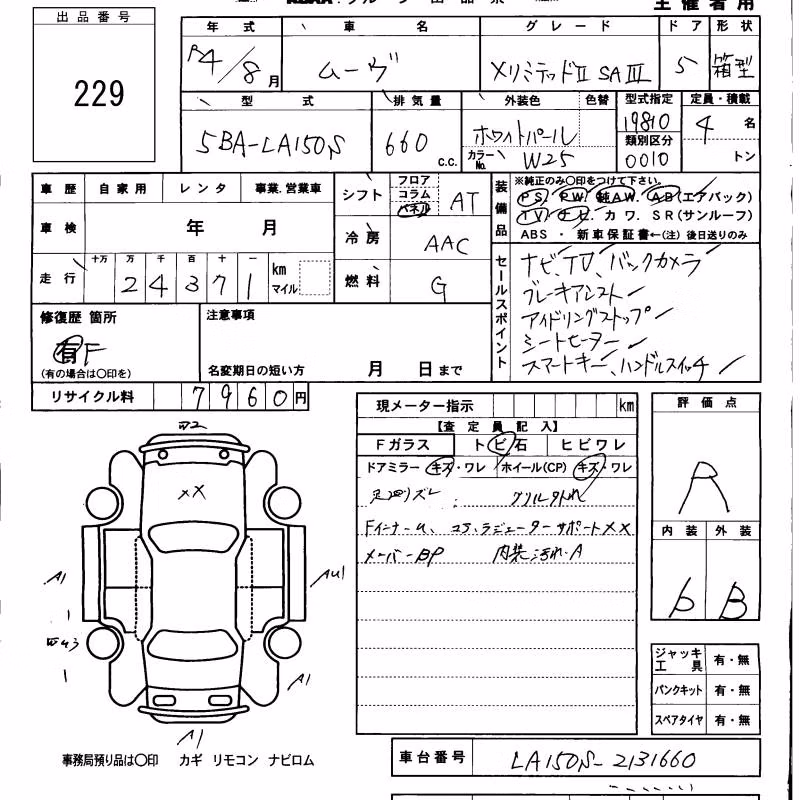 主催者用
出品番号
229
年式 車名 グレード ドア 形状
R4/8月 ムーヴ XリミテッドⅡ SAⅢ 5 箱型
型式 排気量 外装色 色替 型式指定 定員・積載
5BA-LA150S 660 c.c. ホワイトパール 19810 4名
カラーNo. W25 類別区分 0010 トン
車歴 自家用 レンタ 事業.営業車
車検 年 月
走行 十万 万 千 百 十 一 km マイル
24371
シフト フロア コラム パネル AT
冷房 AAC
燃料 G
装備品
※純正のみ〇印をつけて下さい。
PS. PW. 純AW. AB(エアバック)
TV. ナビ. カワ. SR(サンルーフ)
ABS ・ 新車保証書←(注) 後日送りのみ
セールスポイント
ナビ、TV、バックカメラ
ブレーキアシスト
アイドリングストップ
シートヒーター
スマートキー、ハンドルスイッチ
修復歴 箇所
有 F
(有の場合は〇印を)
注意事項
名変期日の短い方 月 日まで
リサイクル料 7960円
現メーター指示 km
【査定員記入】
Fガラス トビ石 ヒビワレ
ドアミラー キズ・ワレ ホイール(CP) キズ・ワレ
足回リズレ グリル外れ
Fインナーa、コア、ラジエーターサポートXX
メーバーBP 内装汚れ・A
評価点
R
内装 外装
b B
ジャッキ 工具 有・無
パンクキット 有・無
スペアタイヤ 有・無
XX
A1
AU1
1
1
A1
A1
事務局預り品は〇印 カギ リモコン ナビロム
車台番号 LA150S-2131660